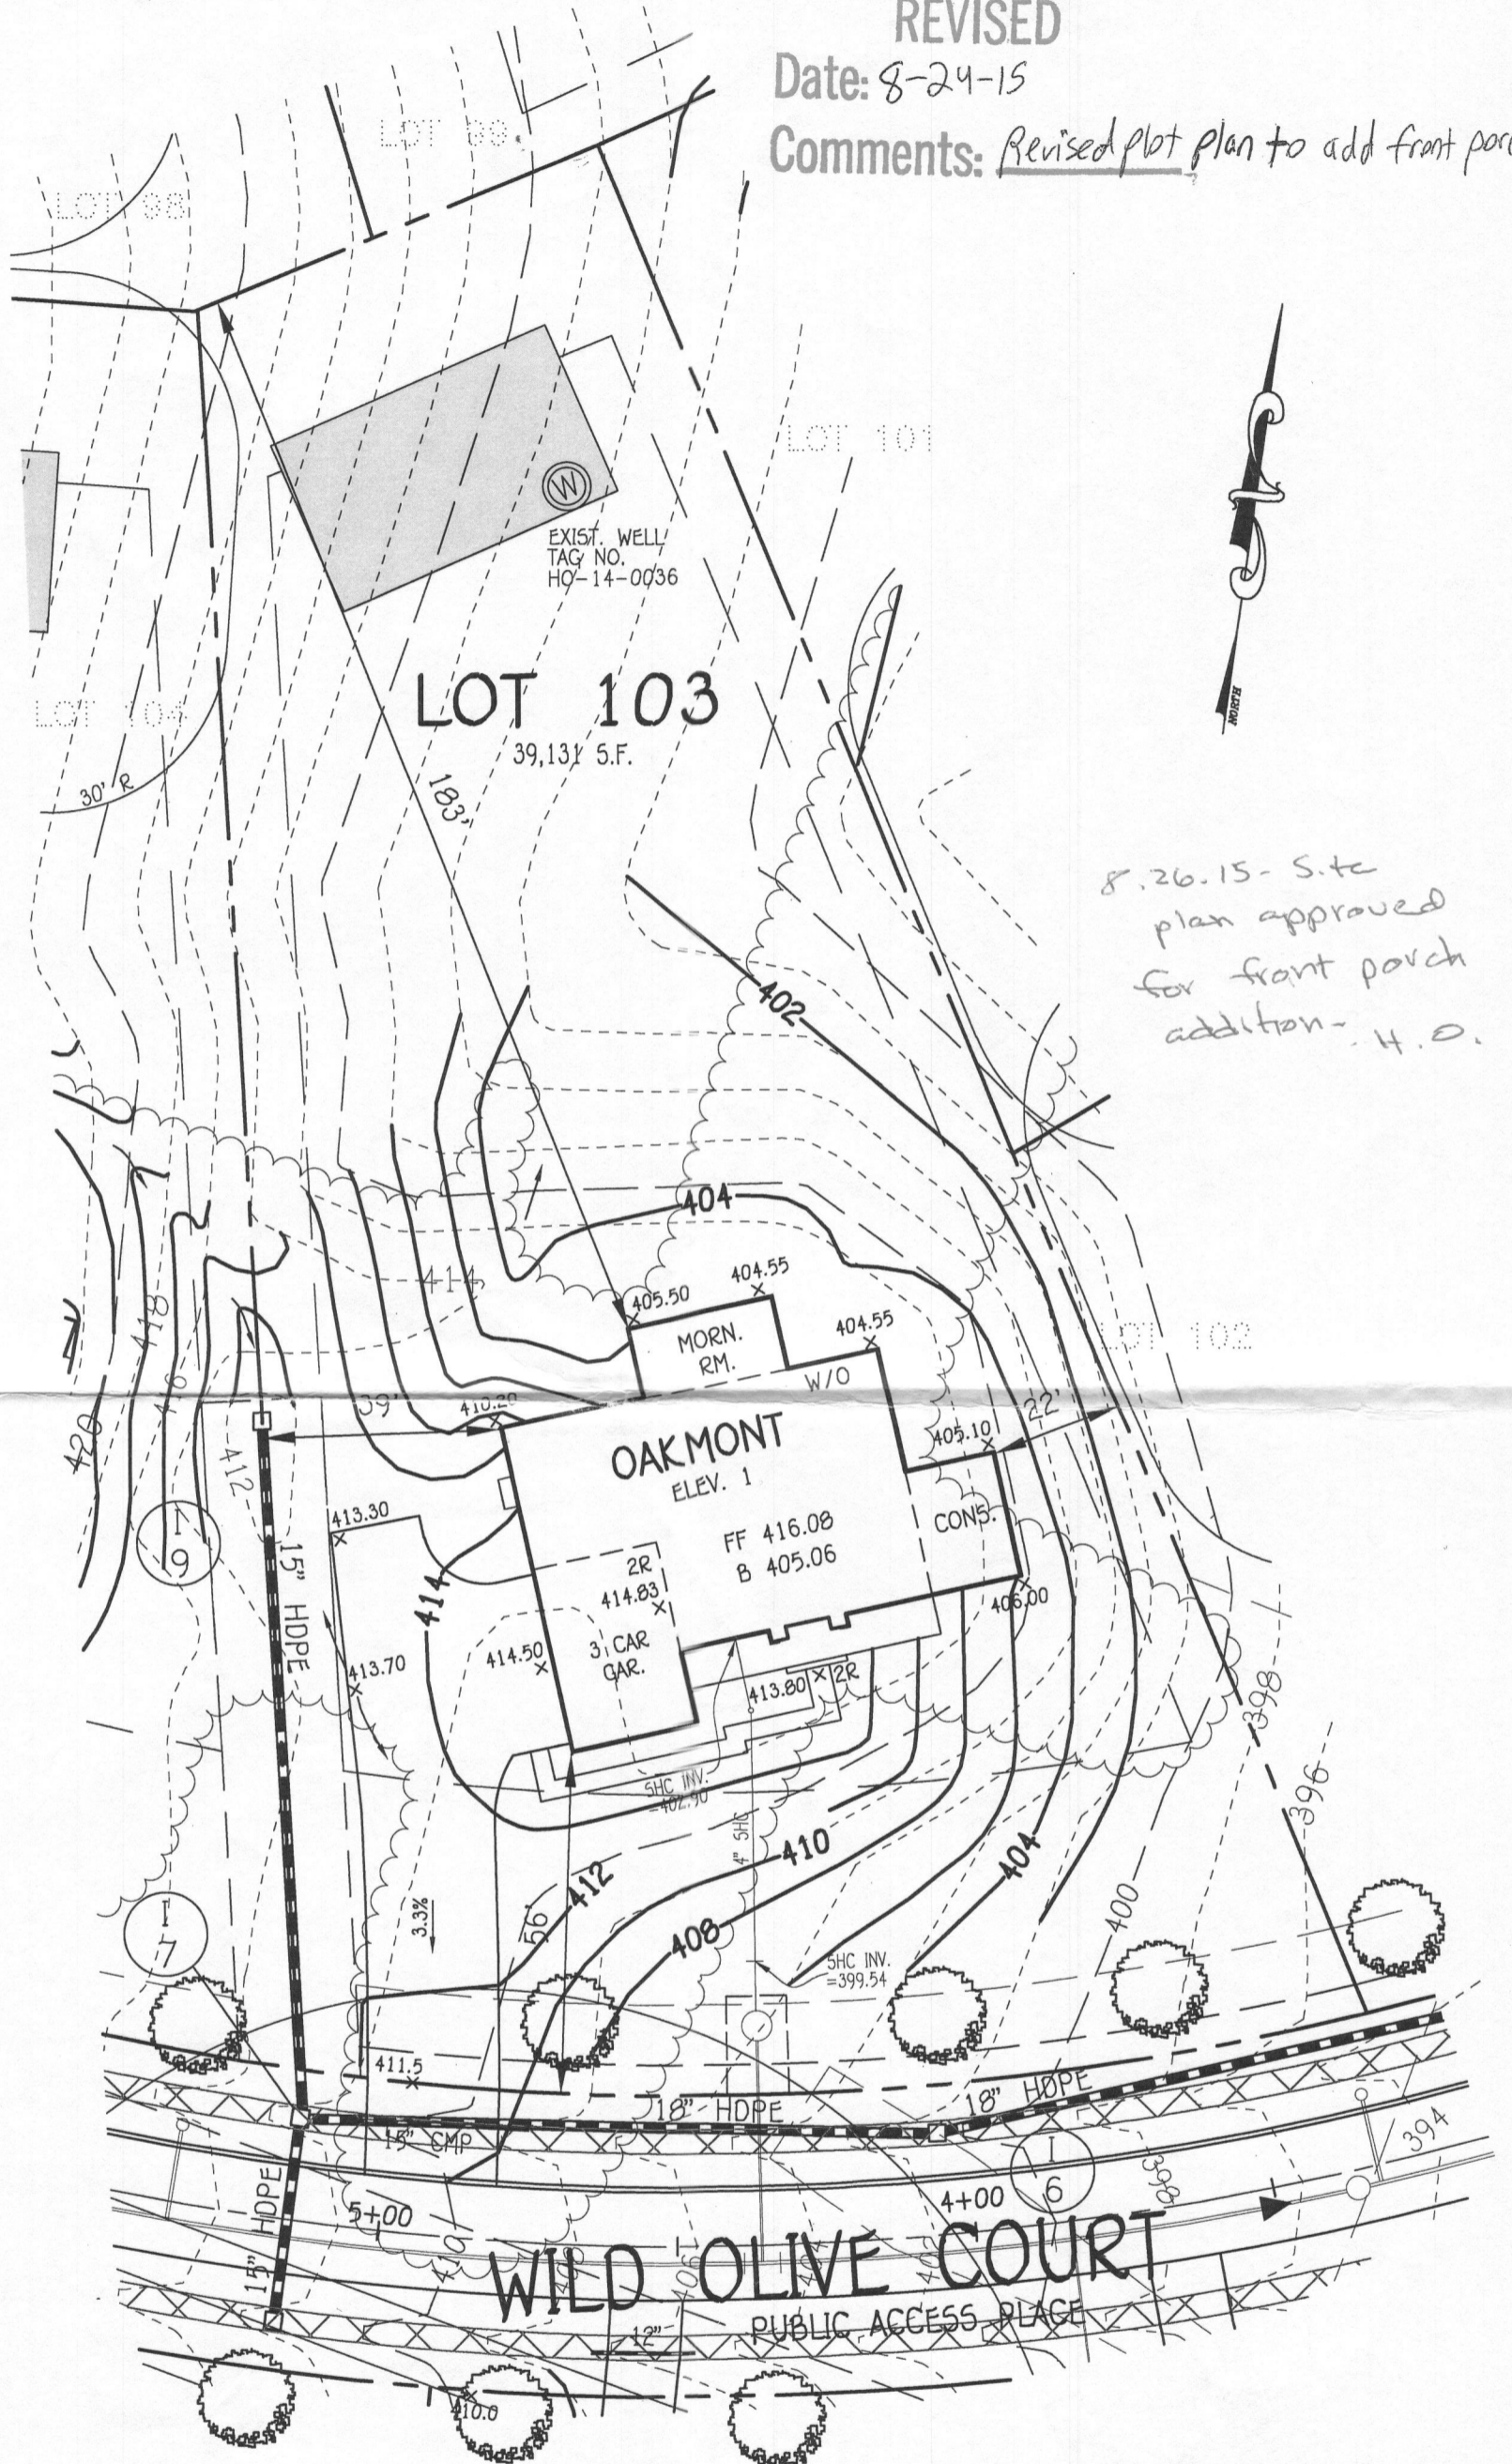 REVISED
Date: 8-24-15
Comments: Revised plot plan to add front
LOT 99
LOT 98
LOT 101
W
EXIST. WELL
TAG NO.
HO-14-0036
NORTH
LOT 103
39,131 S.F.
LOT 104
30' R
183'
8.26.15 - Site
plan approved
for front porch
addition - H.O.
402
404
414
405.50
404.55
404.55
MORN.
RM.
W/O
LOT 102
418
416
420
412
39'
410.20
22'
405.10
OAKMONT
ELEV. 1
FF 416.08
B 405.06
CONS.
413.30
I
9
15" HDPE
414
2R
414.83
406.00
414.50
3 CAR
GAR.
413.70
413.80
2R
398
396
SHC INV.
=402.90
4" SHC
410
404
412
408
400
56'
3.3%
I
7
SHC INV.
=399.54
411.5
18" HDPE
18" HDPE
15" CMP
15" HDPE
I
6
394
398
5+00
4+00
410
406
WILD OLIVE COURT
PUBLIC ACCESS PLACE
12"
410.0